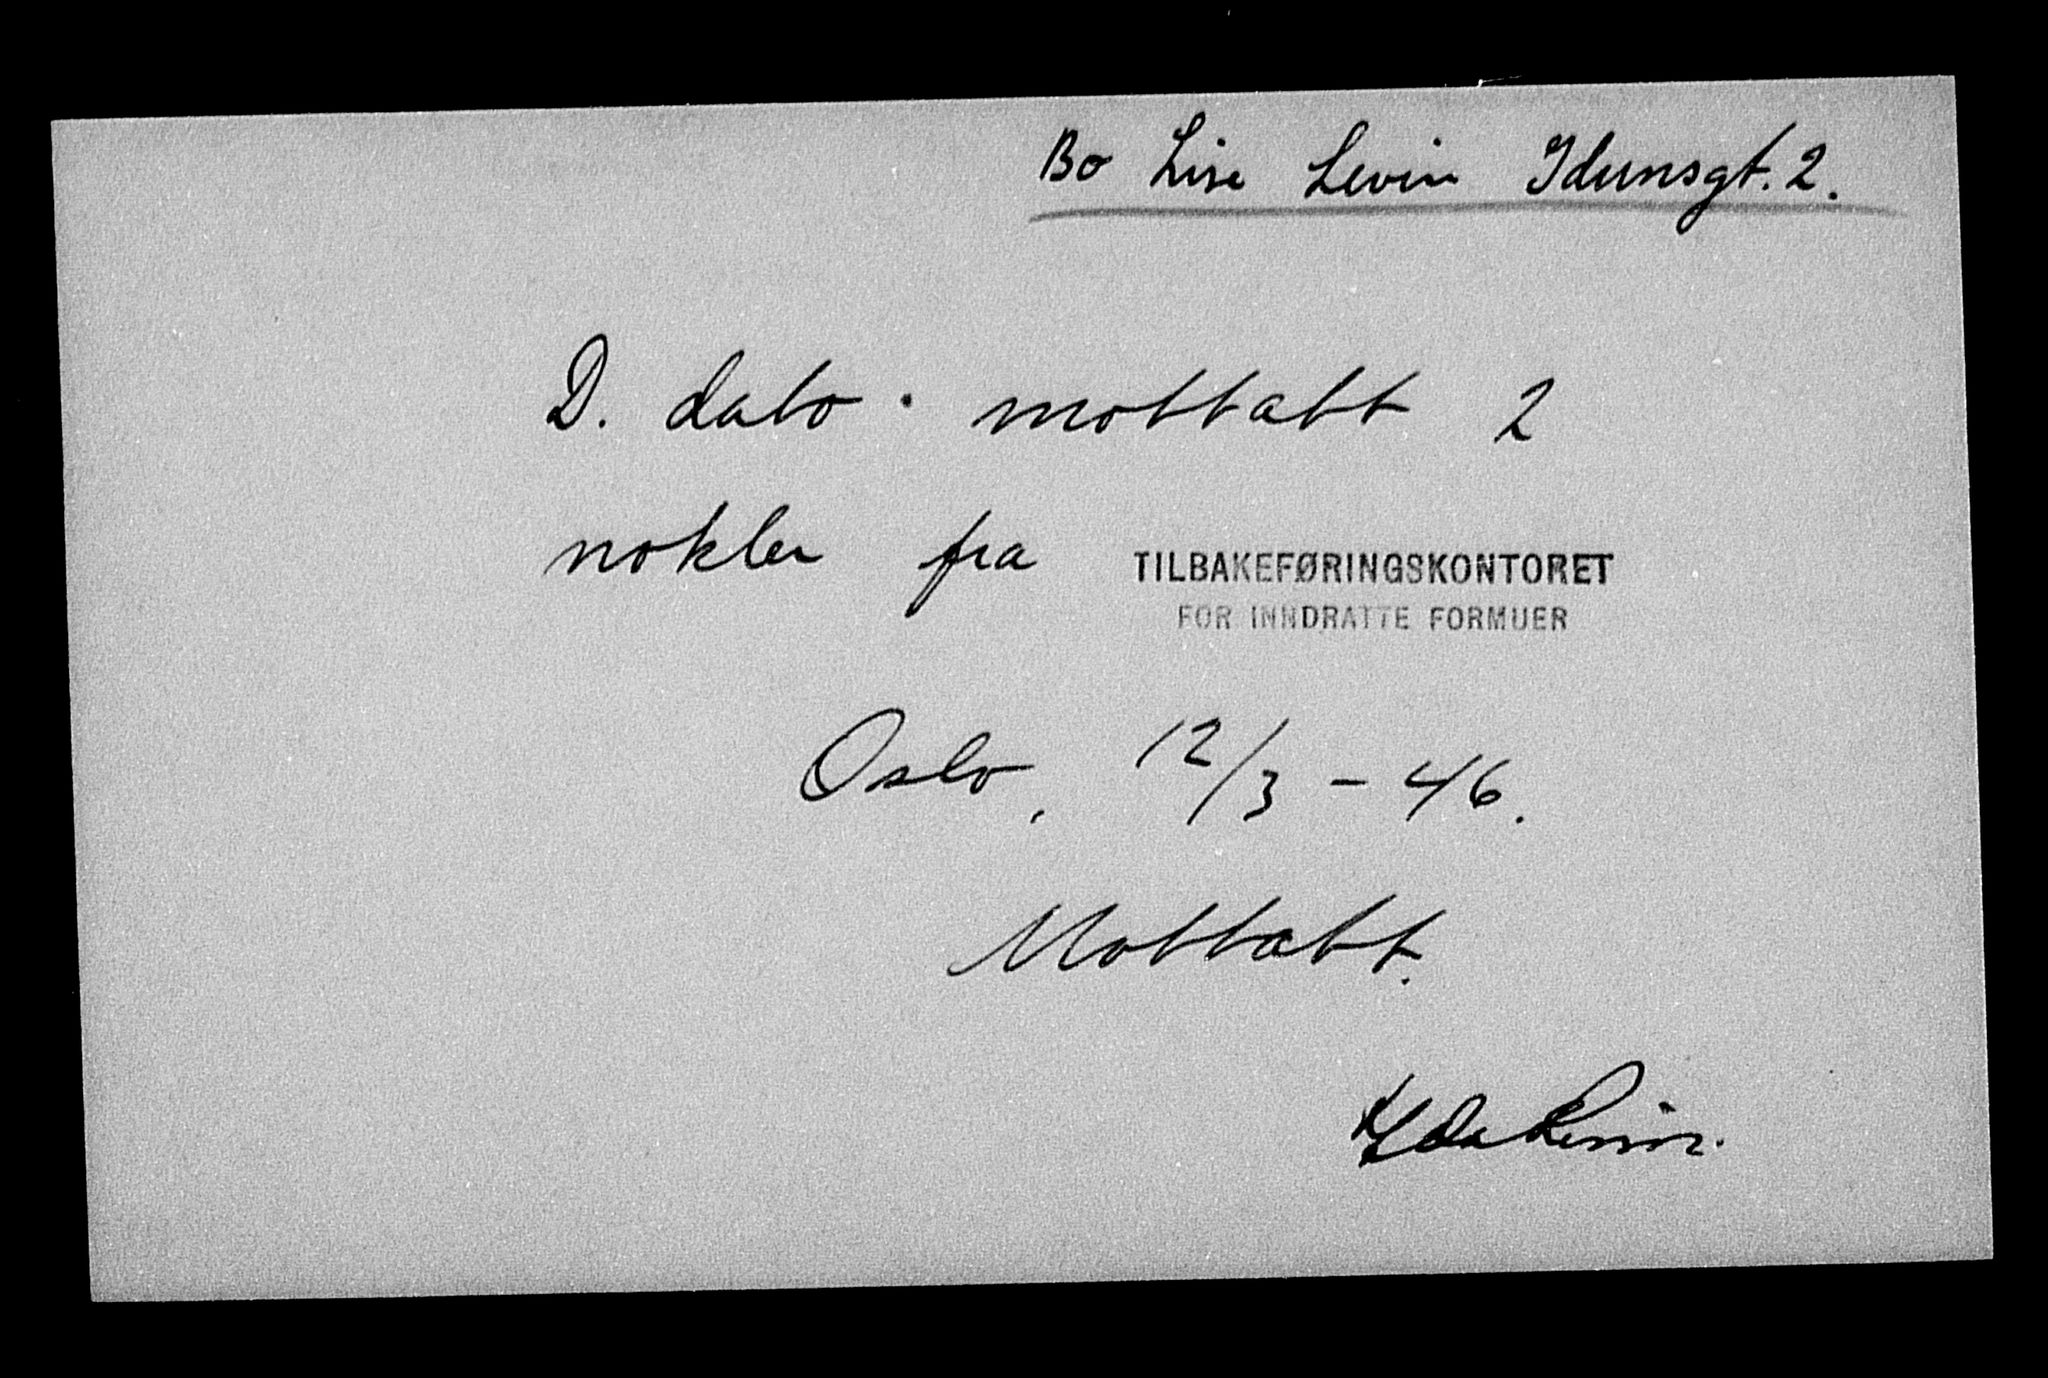 Bo Lise Levin Idunsgt. 2.
D. dato. mottatt 2
nokler fra TILBAKEFØRINGSKONTORET
FOR INNDRATTE FORMUER
Oslo, 12/3 - 46.
Mottatt.